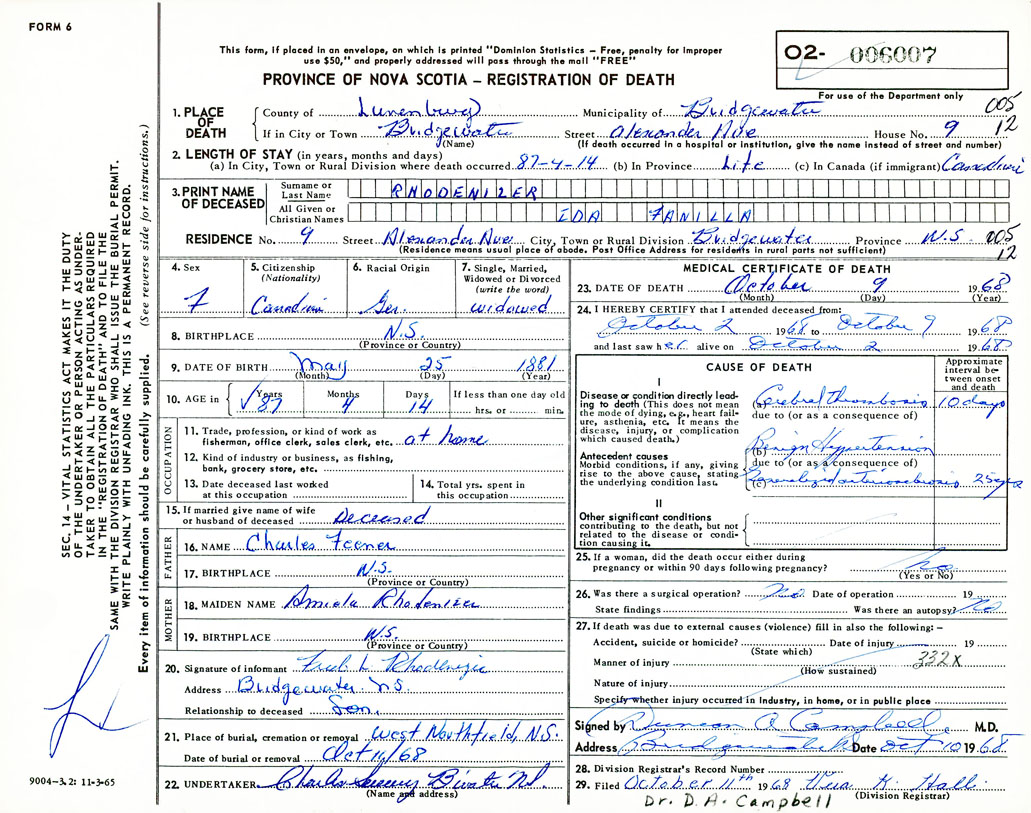 FORM 6
This form, if placed in an envelope, on which is printed "Dominion Statistics – Free, penalty for improper
use $50," and properly addressed will pass through the mail "FREE"
PROVINCE OF NOVA SCOTIA – REGISTRATION OF DEATH
O2- 006007
For use of the Department only
005
12
1. PLACE OF DEATH
County of Lunenburg Municipality of Bridgewater
If in City or Town Bridgewater Street Alexander Ave House No. 9
(Name) (If death occurred in a hospital or institution, give the name instead of street and number)
2. LENGTH OF STAY (in years, months and days)
(a) In City, Town or Rural Division where death occurred 87-4-14 (b) In Province Life (c) In Canada (if immigrant) Canadian
3. PRINT NAME OF DECEASED
Surname or Last Name RHODENIZER
All Given or Christian Names IDA FANILLA
RESIDENCE No. 9 Street Alexander Ave City, Town or Rural Division Bridgewater Province N.S. 005
(Residence means usual place of abode. Post Office Address for residents in rural parts not sufficient) 12
4. Sex F
5. Citizenship (Nationality) Canadian
6. Racial Origin Ger.
7. Single, Married, Widowed or Divorced (write the word) widowed
8. BIRTHPLACE N.S.
(Province or Country)
9. DATE OF BIRTH May 25 1881
(Month) (Day) (Year)
10. AGE in Years 87 Months 4 Days 14 If less than one day old
hrs. or min.
OCCUPATION
11. Trade, profession, or kind of work as
fisherman, office clerk, sales clerk, etc. at home
12. Kind of industry or business, as fishing,
bank, grocery store, etc.
13. Date deceased last worked
at this occupation
14. Total yrs. spent in
this occupation
15. If married give name of wife
or husband of deceased Deceased
FATHER
16. NAME Charles Feener
17. BIRTHPLACE N.S.
(Province or Country)
MOTHER
18. MAIDEN NAME Rhodenizer
19. BIRTHPLACE N.S.
(Province or Country)
20. Signature of informant L. Rhodenizer
Address Bridgewater N.S.
Relationship to deceased Son.
21. Place of burial, cremation or removal West Northfield, N.S.
Date of burial or removal Oct 11/68
22. UNDERTAKER Charles
(Name and address)
MEDICAL CERTIFICATE OF DEATH
23. DATE OF DEATH October 9 1968
(Month) (Day) (Year)
24. I HEREBY CERTIFY that I attended deceased from:
October 2 1968 to October 9 1968
and last saw her alive on October 2 1968
CAUSE OF DEATH
Approximate interval between onset and death
I
Disease or condition directly leading to death (This does not mean the mode of dying, e.g., heart failure, asthenia, etc. It means the disease, injury, or complication which caused death.)
(a) Cerebral thrombosis 10 days
due to (or as a consequence of)
Antecedent causes
Morbid conditions, if any, giving rise to the above cause, stating the underlying condition last.
(b) Benign Hypertension
due to (or as a consequence of)
(c) Generalized arteriosclerosis 25 yrs
II
Other significant conditions
contributing to the death, but not related to the disease or condition causing it.
25. If a woman, did the death occur either during
pregnancy or within 90 days following pregnancy? No
(Yes or No)
26. Was there a surgical operation? No Date of operation 19
State findings Was there an autopsy? No
27. If death was due to external causes (violence) fill in also the following: –
Accident, suicide or homicide? Date of injury 19
(State which)
Manner of injury 332X
(How sustained)
Nature of injury
Specify whether injury occurred in Industry, in home, or in public place
Signed by Duncan A Campbell M.D.
Address Bridgewater Date Oct 10 1968
28. Division Registrar's Record Number
29. Filed October 11th 1968
(Division Registrar)
Dr. D. A. Campbell
SEC. 14 – VITAL STATISTICS ACT MAKES IT THE DUTY
OF THE UNDERTAKER OR PERSON ACTING AS UNDER-
TAKER TO OBTAIN ALL THE PARTICULARS REQUIRED
IN THE "REGISTRATION OF DEATH" AND TO FILE THE
SAME WITH THE DIVISION REGISTRAR WHO SHALL ISSUE THE BURIAL PERMIT.
WRITE PLAINLY WITH UNFADING INK. THIS IS A PERMANENT RECORD.
Every item of information should be carefully supplied. (See reverse side for instructions.)
9004-3.2: 11-3-65